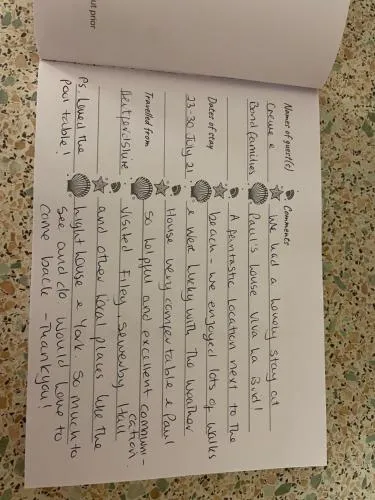 ut prior
Names of guest(s)
Crewe &
Bond families
Dates of stay
23-30 July 21
Travelled from
Hertfordshire
Ps. Loved the
pool table!
Comments
We had a lovely stay at
Paul's house Viva La Bird!
A fantastic location next to the
beach - we enjoyed lots of walks
& were lucky with the weather
House very comfortable & Paul
so helpful and excellent communi-
cation.
Visited Filey, Sewerby Hall
and other local places like the
lighthouse & York. So much to
see and do would love to
come back - Thankyou!